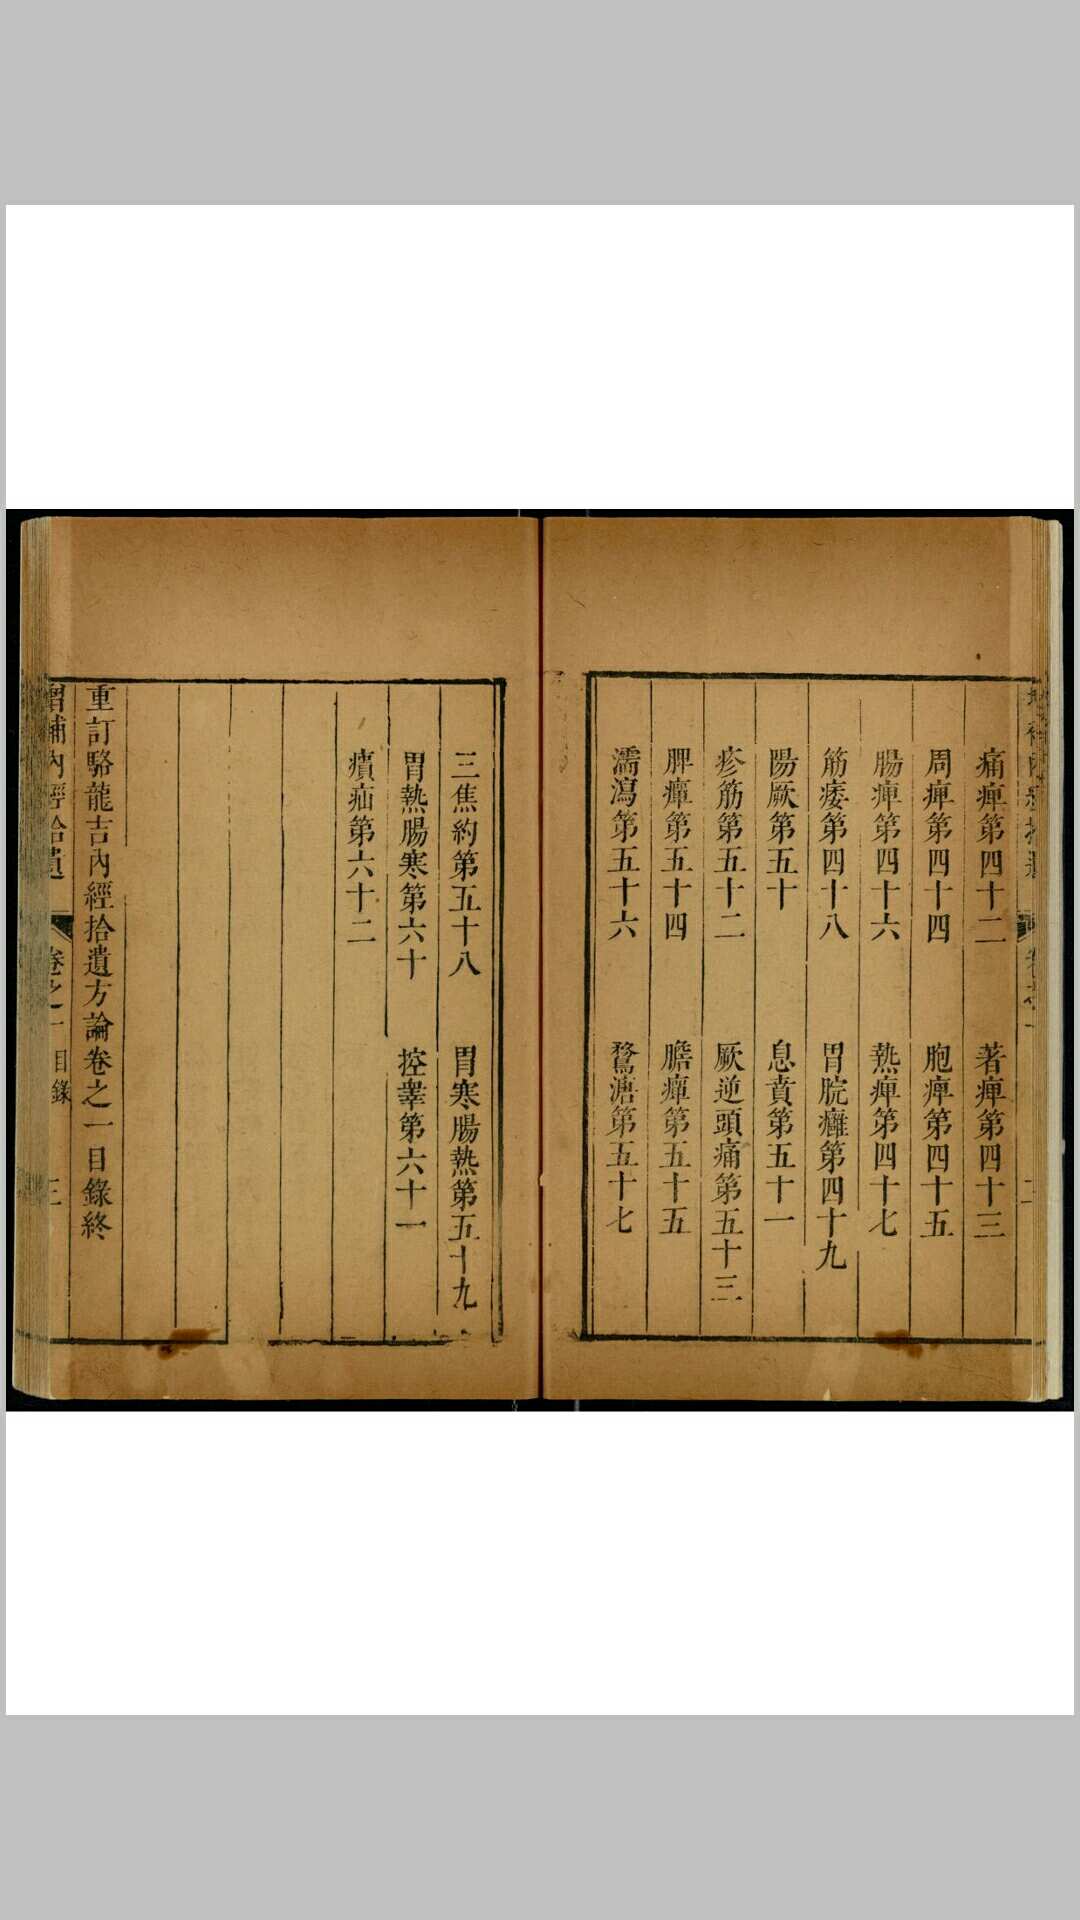 痛痺第四十二
著痺第四十三
周痺第四十四
胞痺第四十五
腸痺第四十六
熱痺第四十七
筋痿第四十八
胃脘癰第四十九
陽厥第五十
息賁第五十一
疹筋第五十二
厥逆頭痛第五十三
脾癉第五十四
膽癉第五十五
濡瀉第五十六
鶩溏第五十七
三焦約第五十八
胃寒腸熱第五十九
胃熱腸寒第六十
控睾第六十一
㿉疝第六十二
重訂駱龍吉內經拾遺方論卷之一目錄終
增補內經拾遺 卷之一 目錄 三